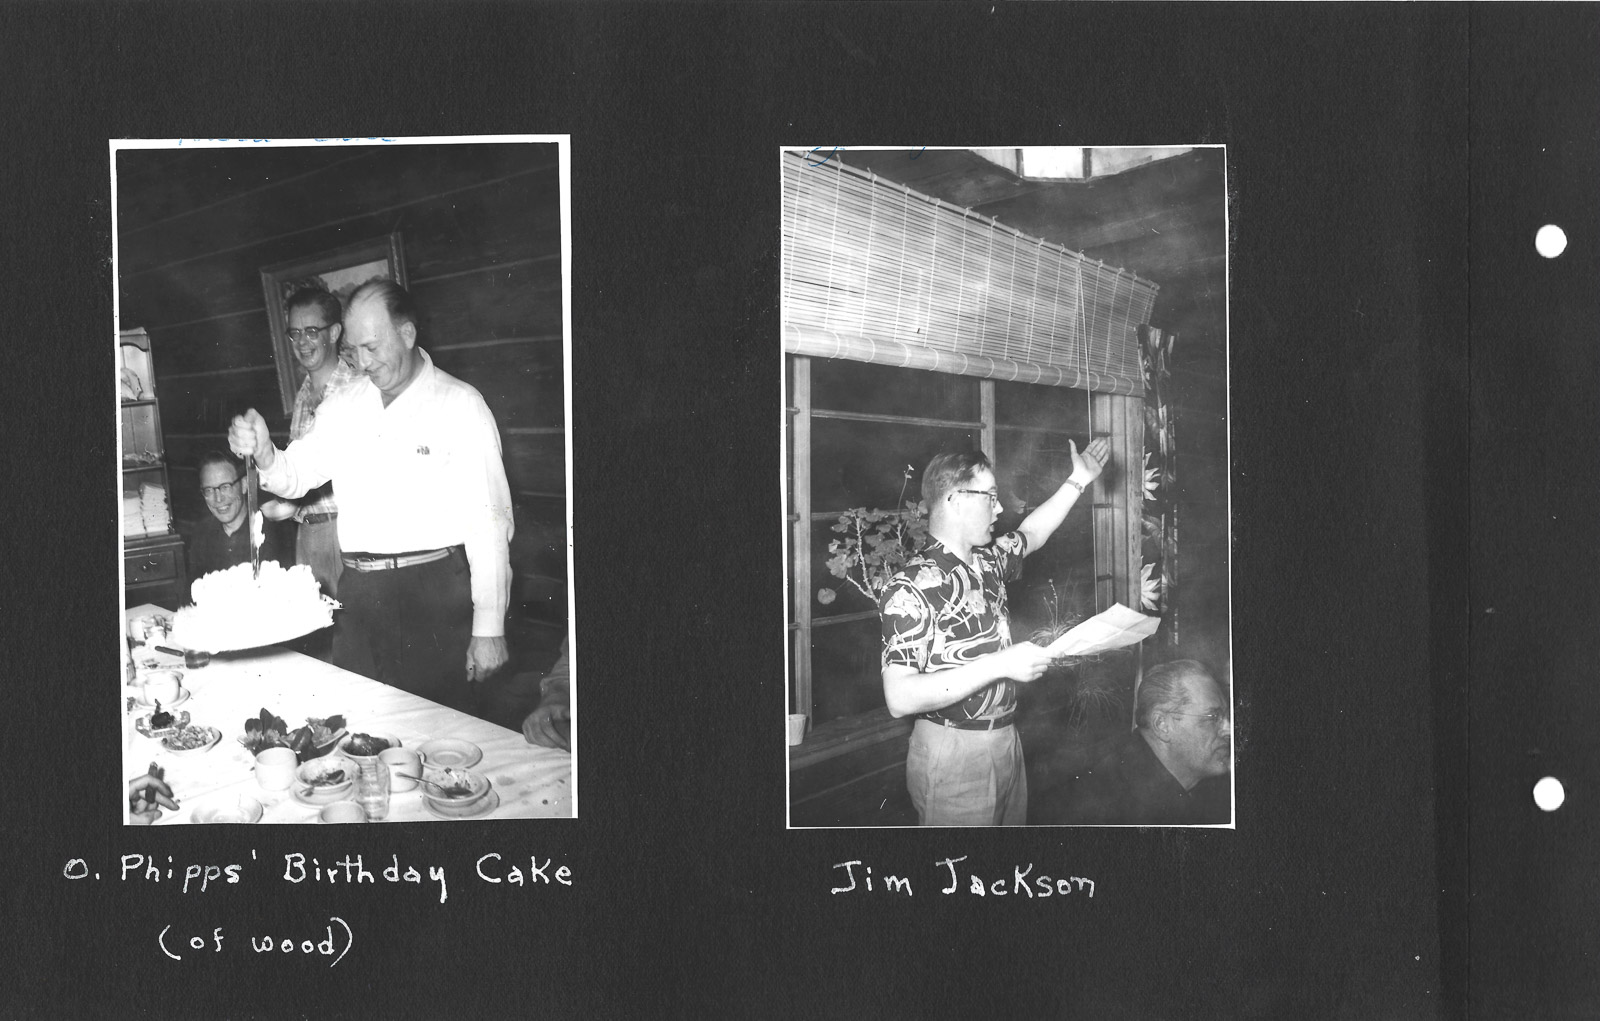 O. Phipps' Birthday Cake
(of wood)
Jim Jackson